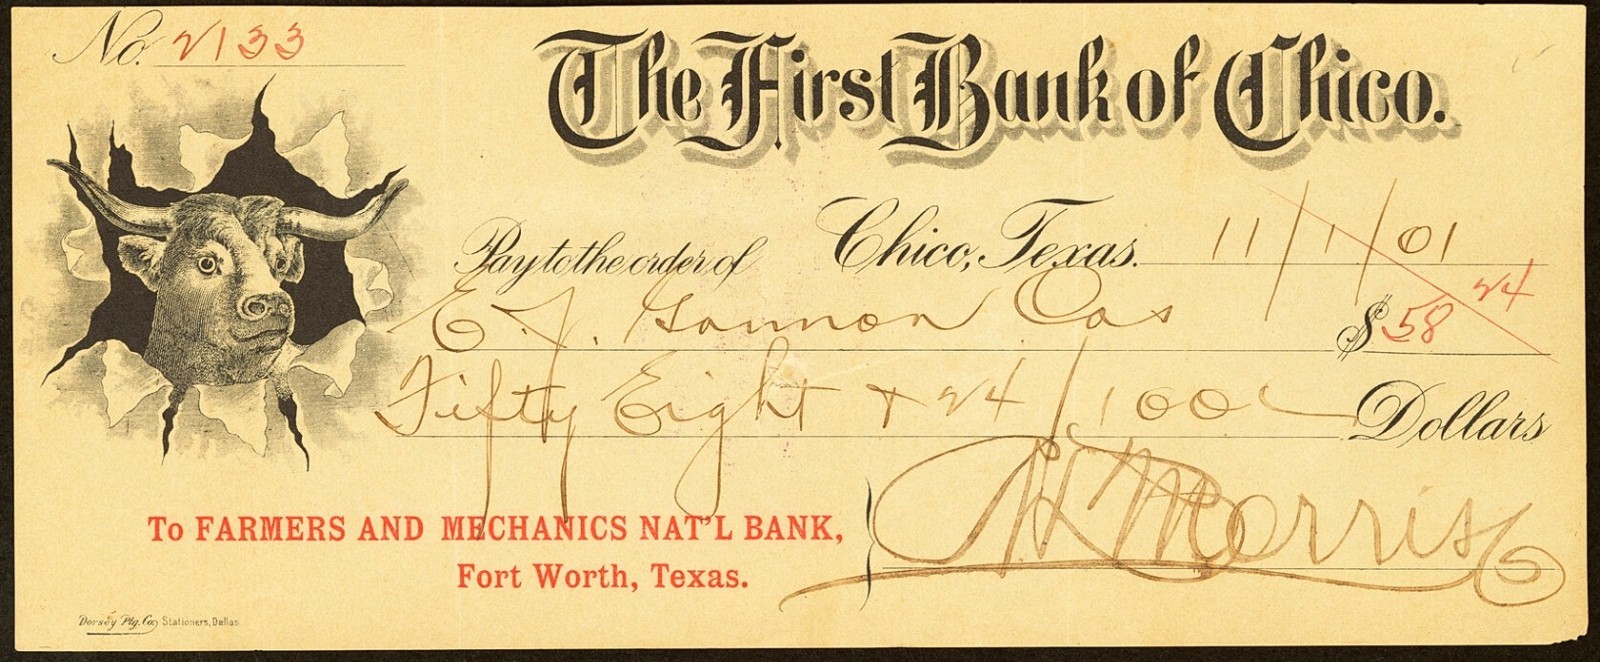 No. 2133
The First Bank of Chico.
Chico, Texas. 11/1/01
Pay to the order of
E. J. Gannon Cas $58 24
Fifty Eight + 24/100 Dollars
To FARMERS AND MECHANICS NAT'L BANK,
Fort Worth, Texas.
Morris
Dorsey Ptg. Co, Stationers, Dallas.